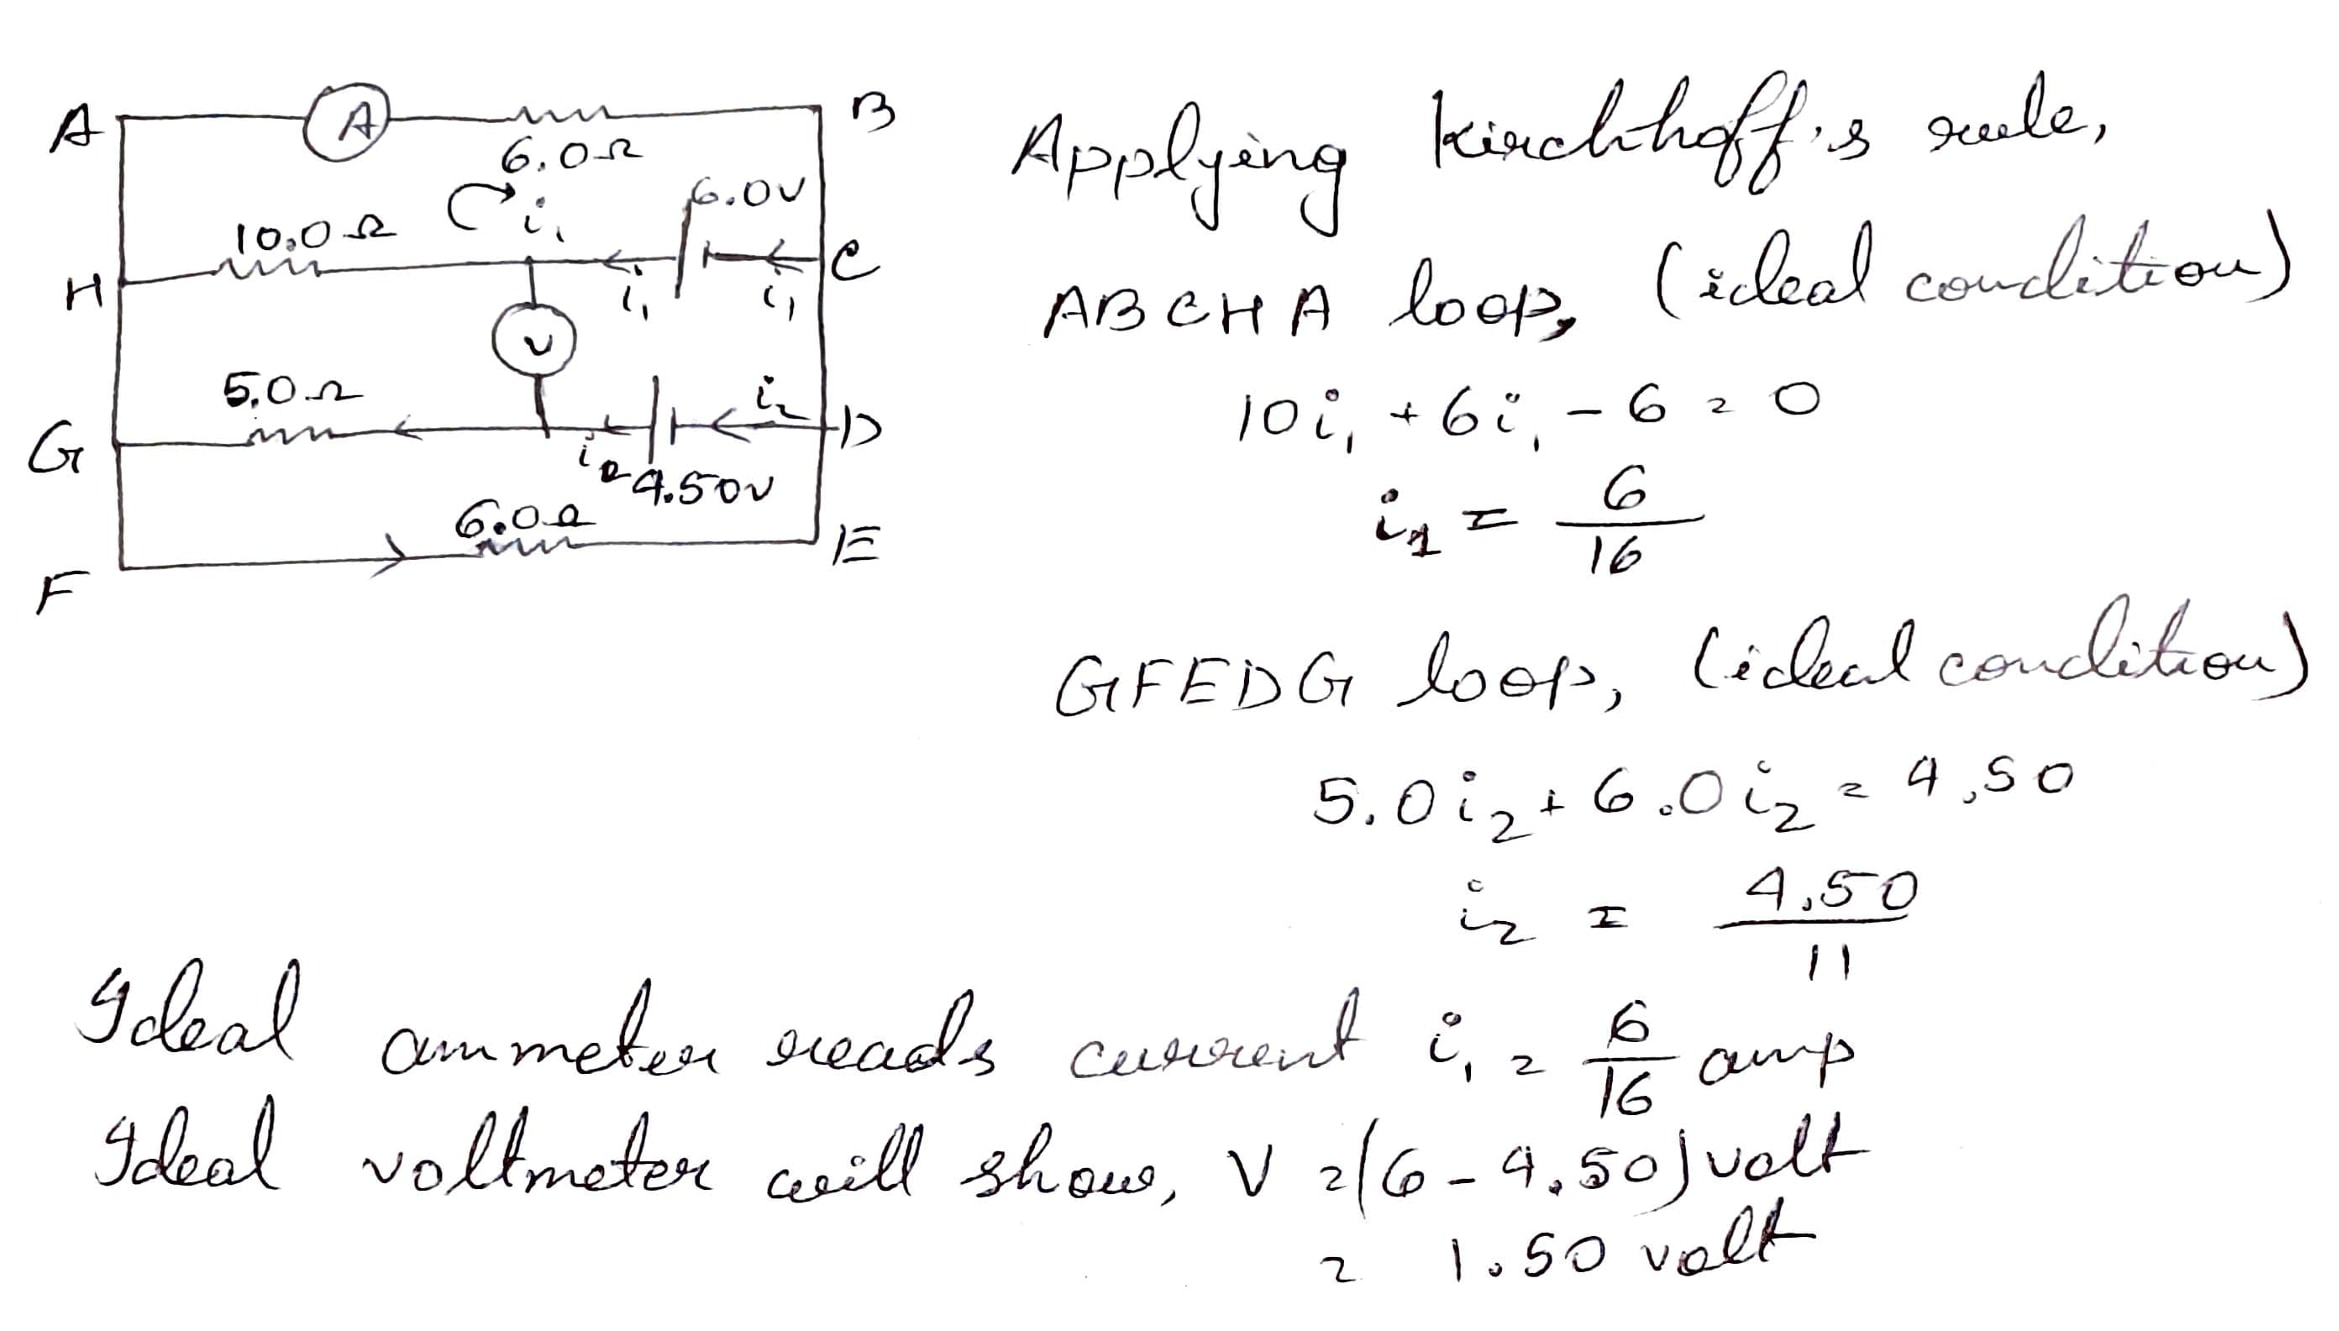 A
A
B
6.0Ω
6.0V
i₁
10.0Ω
H
i₁
i₁
C
V
5.0Ω
i₂
G
D
i₂
4.50V
6.0Ω
E
F
Applying Kirchhoff's rule,
ABCHA loop, (ideal condition)
10i₁ + 6i₁ - 6 = 0
i₁ = 6/16
GFEDG loop, (ideal condition)
5.0i₂ + 6.0i₂ = 4.50
i₂ = 4.50/11
Ideal ammeter reads current i₁ = 6/16 amp
Ideal voltmeter will show, V = (6 - 4.50) volt
= 1.50 volt